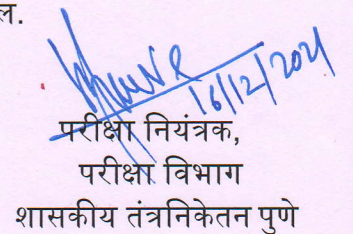 ल.
16/12/2021
परीक्षा नियंत्रक,
परीक्षा विभाग
शासकीय तंत्रनिकेतन पुणे